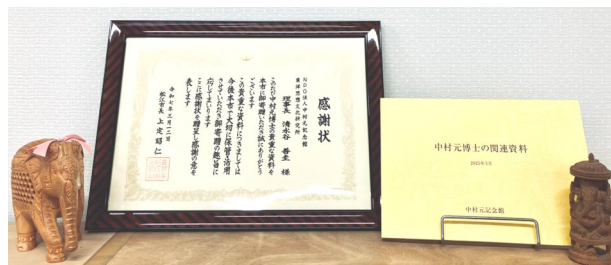 感謝状
NPO法人中村元記念館
東洋思想文化研究所
理事長 清水谷 善圭 様
このたび中村元博士の貴重な資料を
本市に御寄贈いただき誠にありがとう
ございます
この貴重な資料につきましては
今後本市で大切に保管・活用
させていただき御寄贈の趣旨に
応じてまいります
ここに感謝状を贈呈し感謝の意を
表します
令和七年三月二一日
松江市長 上定昭仁
中村元博士の関連資料
2025年3月
中村元記念館